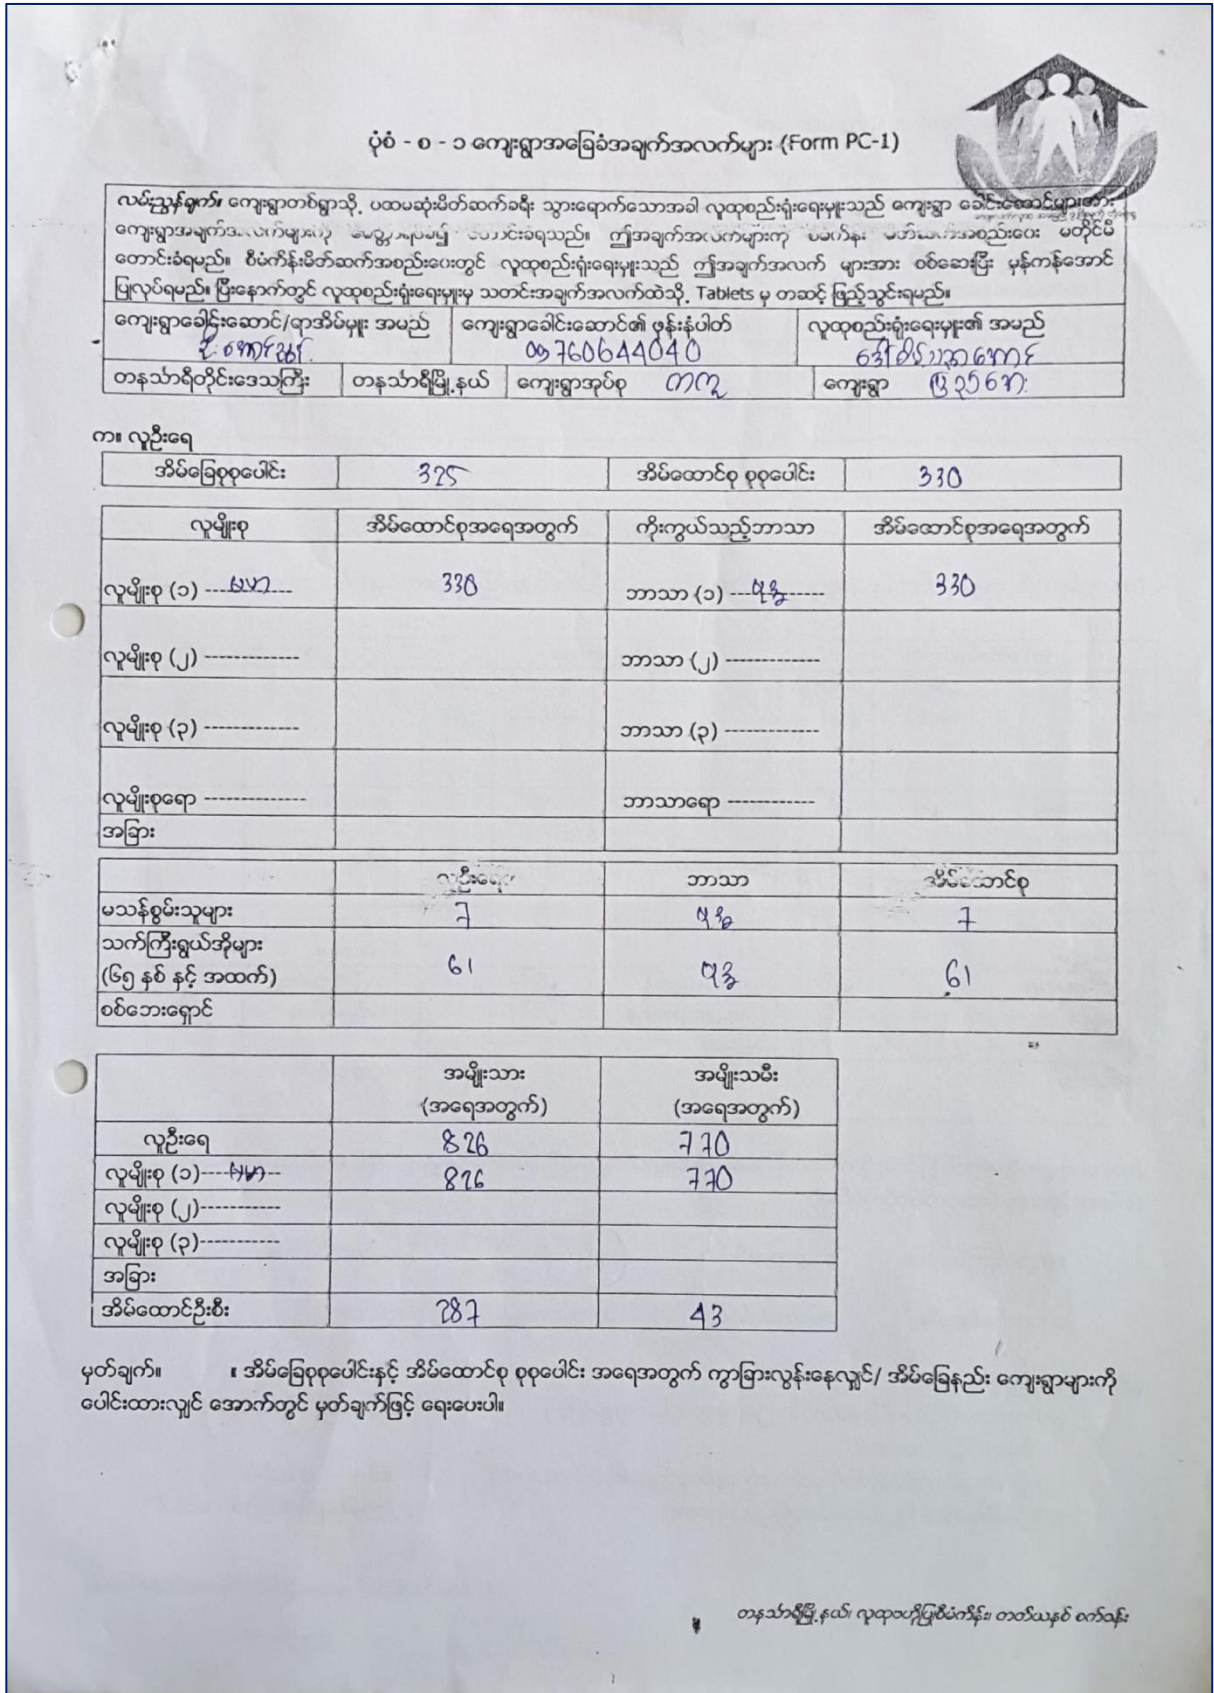 ပုံစံ - စ - ၁ ကျေးရွာအခြေခံအချက်အလက်များ (Form PC-1)
လမ်းညွှန်ချက်။ ကျေးရွာတစ်ရွာသို့ ပထမဆုံးမိတ်ဆက်ခရီး သွားရောက်သောအခါ လူထုစည်းရုံးရေးမှူးသည် ကျေးရွာ ခေါင်းဆောင်များအား
ကျေးရွာအချက်အလက်များကို တောင်းခံရသည်။ ဤအချက်အလက်များကို မိတ်ဆက်အစည်းဝေး မတိုင်မီ
တောင်းခံရမည်။ စီမံကိန်းမိတ်ဆက်အစည်းဝေးတွင် လူထုစည်းရုံးရေးမှူးသည် ဤအချက်အလက် များအား စစ်ဆေးပြီး မှန်ကန်အောင်
ပြုလုပ်ရမည်။ ပြီးနောက်တွင် လူထုစည်းရုံးရေးမှူးမှ သတင်းအချက်အလက်ထဲသို့ Tablets မှ တဆင့် ဖြည့်သွင်းရမည်။
ကျေးရွာခေါင်းဆောင်/ရာအိမ်မှူး အမည် ကျေးရွာခေါင်းဆောင်၏ ဖုန်းနံပါတ် လူထုစည်းရုံးရေးမှူး၏ အမည်
09760644040
တနင်္သာရီတိုင်းဒေသကြီး တနင်္သာရီမြို့နယ် ကျေးရွာအုပ်စု တကူ ကျေးရွာ
က။ လူဦးရေ
အိမ်ခြေစုစုပေါင်း 325 အိမ်ထောင်စု စုစုပေါင်း 330
လူမျိုးစု အိမ်ထောင်စုအရေအတွက် ကိုးကွယ်သည့်ဘာသာ အိမ်ထောင်စုအရေအတွက်
လူမျိုးစု (၁) ---ဗမာ------ 330 ဘာသာ (၁) ---ဗုဒ္ဓ------ 330
လူမျိုးစု (၂) ------------- ဘာသာ (၂) -------------
လူမျိုးစု (၃) ------------- ဘာသာ (၃) -------------
လူမျိုးစုရော -------------- ဘာသာရော ------------
အခြား
လူဦးရေ ဘာသာ အိမ်ထောင်စု
မသန်စွမ်းသူများ 7 ဗုဒ္ဓ 7
သက်ကြီးရွယ်အိုများ
(၆၅ နှစ် နှင့် အထက်) 61 ဗုဒ္ဓ 61
စစ်ဘေးရှောင်
အမျိုးသား အမျိုးသမီး
(အရေအတွက်) (အရေအတွက်)
လူဦးရေ 826 770
လူမျိုးစု (၁)----ဗမာ-- 826 770
လူမျိုးစု (၂)-----------
လူမျိုးစု (၃)-----------
အခြား
အိမ်ထောင်ဦးစီး 287 43
မှတ်ချက်။ ။ အိမ်ခြေစုစုပေါင်းနှင့် အိမ်ထောင်စု စုစုပေါင်း အရေအတွက် ကွာခြားလွန်းနေလျှင်/ အိမ်ခြေနည်း ကျေးရွာများကို
ပေါင်းထားလျှင် အောက်တွင် မှတ်ချက်ဖြင့် ရေးပေးပါ။
တနင်္သာရီမြို့နယ်၊ လူထုဗဟိုပြုစီမံကိန်း၊ တတိယနှစ် စက်ဝန်း